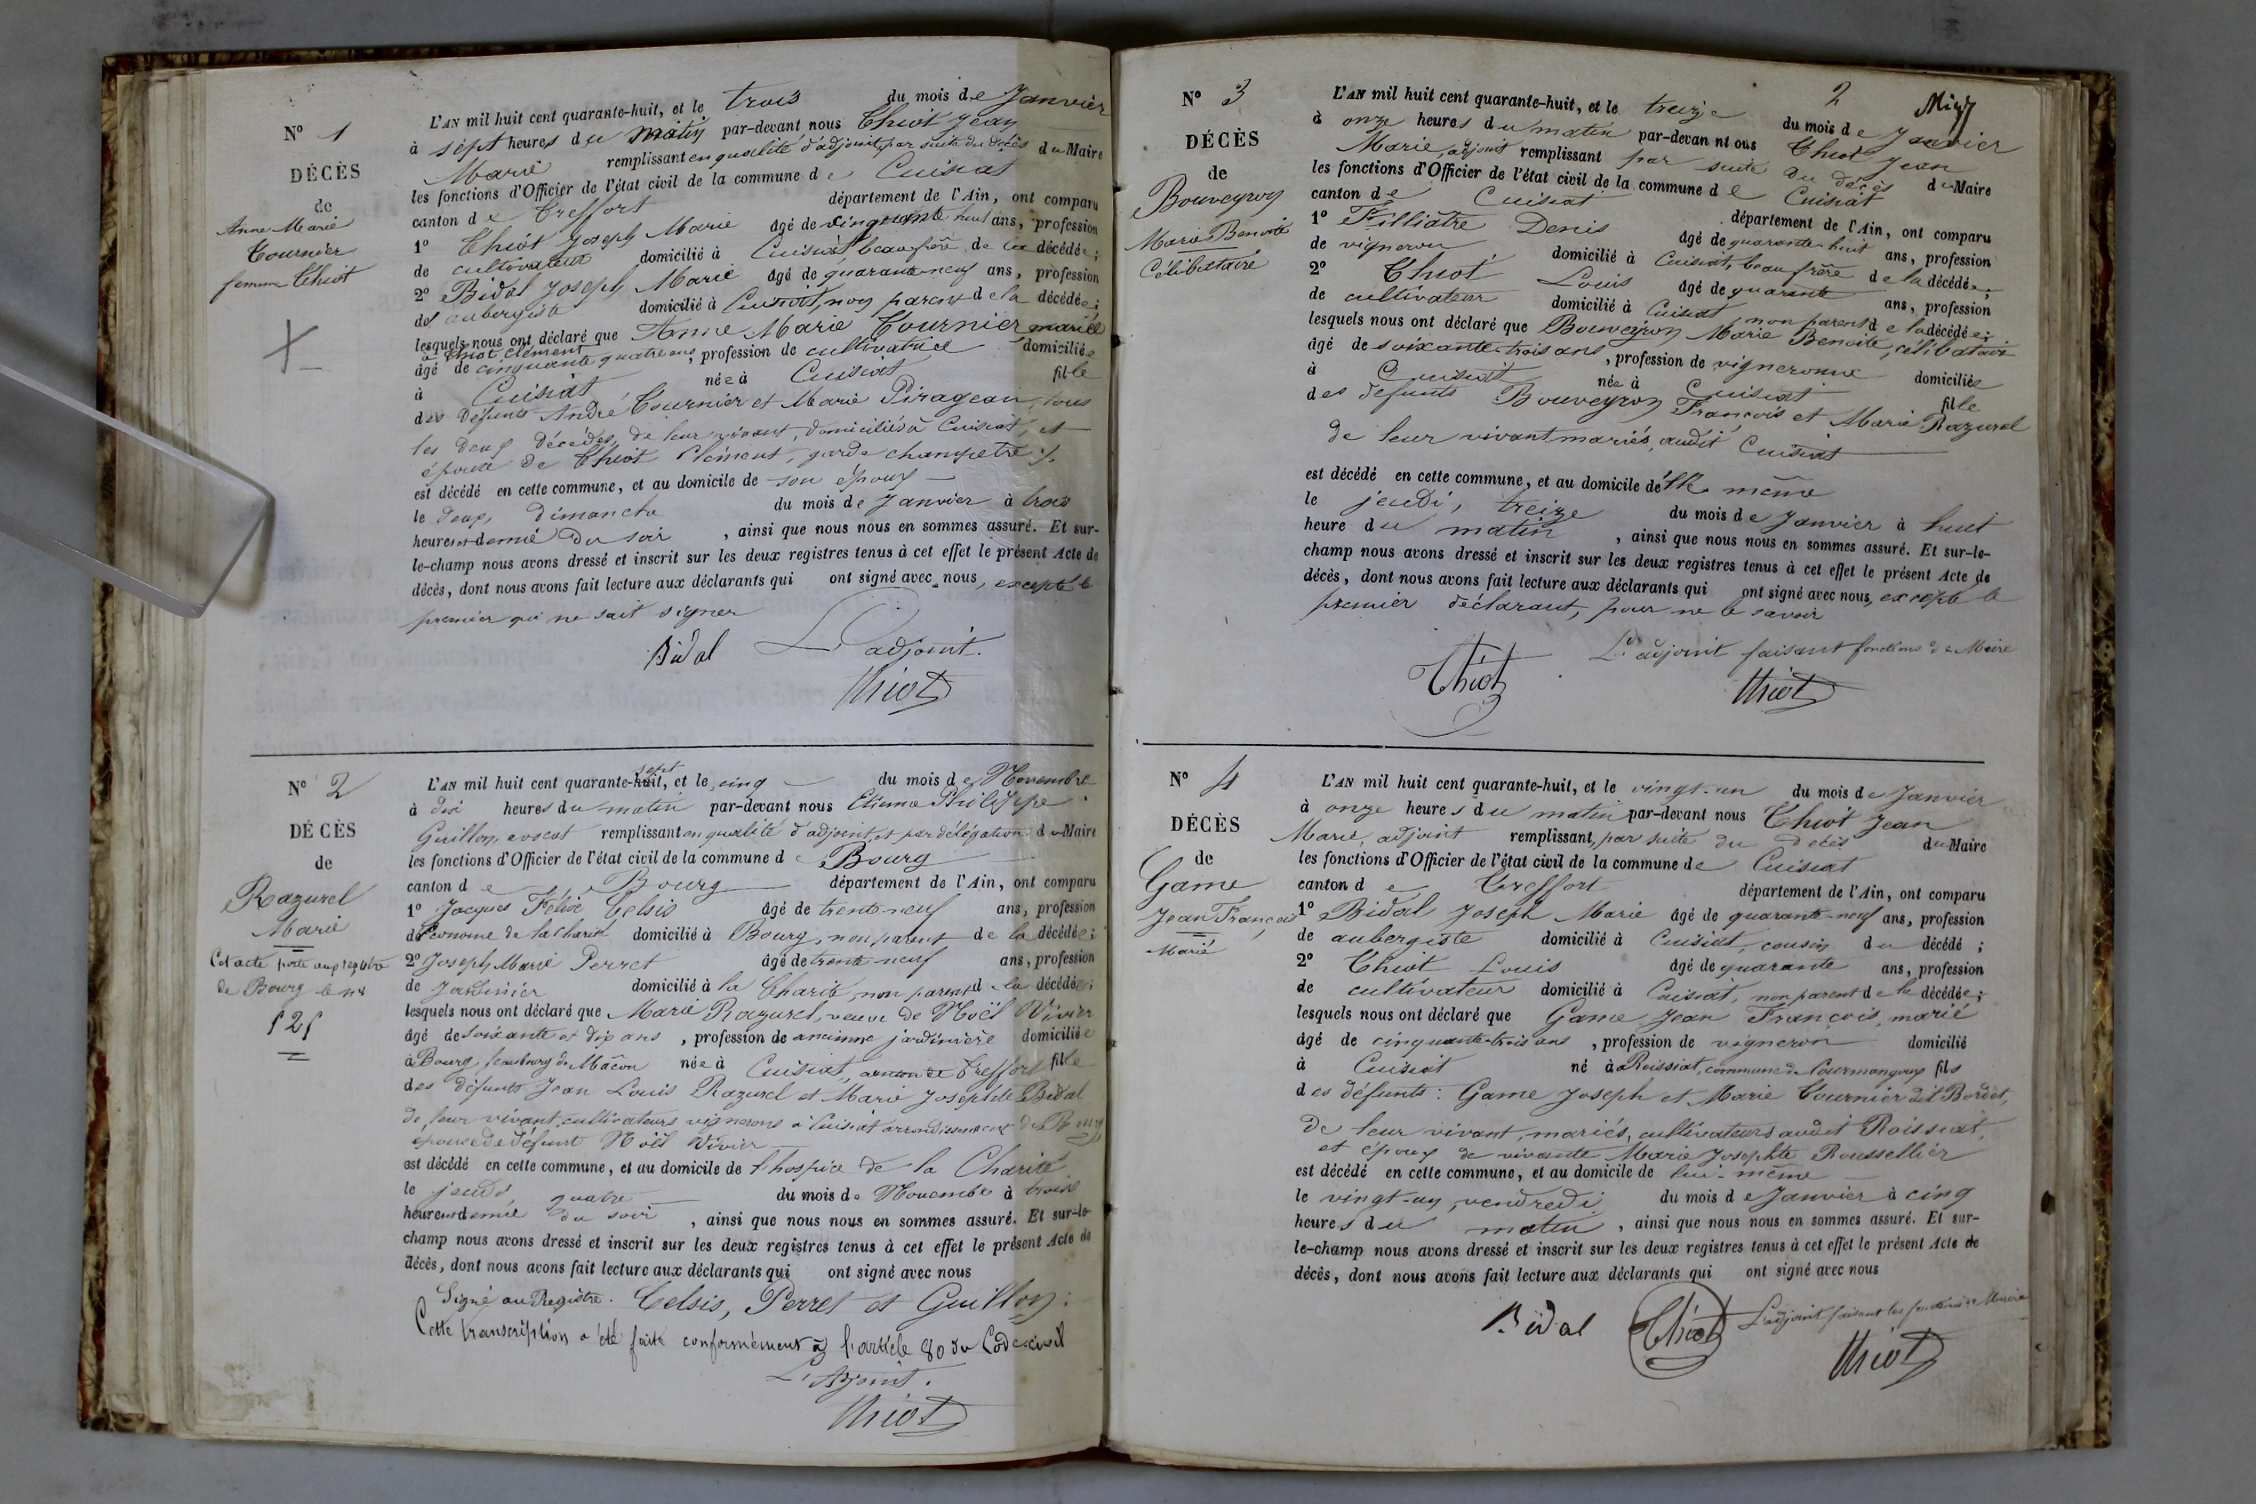 N° 1
DÉCÈS
de
Anne Marie
Tournier
femme Chiot
L'AN mil huit cent quarante-huit, et le trois du mois de Janvier
à sept heures du matin par-devant nous Chiot Jean
Marie remplissant en qualité d'adjoint, par suite du décès du Maire
les fonctions d'Officier de l'état civil de la commune de Cuisiat
canton de Treffort département de l'Ain, ont comparu
1° Chiot Joseph Marie âgé de cinquante huit ans, profession
de cultivateur domicilié à Cuisiat, beau frère de la décédée;
2° Bidal Joseph Marie âgé de quarante-neuf ans, profession
de aubergiste domicilié à Cuisiat, non parent de la décédée;
lesquels nous ont déclaré que Anne Marie Tournier mariée
à Chiot Clément
âgé de cinquante quatre ans, profession de cultivatrice domiciliée
à Cuisiat née à Cuisiat fille
des défunts André Tournier et Marie Pirageau, tous
les deux décédés, de leur vivant, domiciliés à Cuisiat et
épouse de Chiot Clément, garde champetre
est décédé en cette commune, et au domicile de son époux
le deux, dimanche du mois de Janvier à trois
heures et demie du soir, ainsi que nous nous en sommes assuré. Et sur-
le-champ nous avons dressé et inscrit sur les deux registres tenus à cet effet le présent Acte de
décès, dont nous avons fait lecture aux déclarants qui ont signé avec nous, excepté le
premier qui ne sait signer
Bidal L'adjoint.
Chiot
N° 2
DÉCÈS
de
Razurel
Marie
Cet acte porte aux registre
de Bourg le n°
121
L'AN mil huit cent quarante-huit, sept et le cinq du mois de Novembre
à dix heures du matin par-devant nous Etienne Philippe
Guillon, avocat remplissant en qualité d'adjoint, et par délégation du Maire
les fonctions d'Officier de l'état civil de la commune de Bourg
canton de Bourg département de l'Ain, ont comparu
1° Jacques Félix Celsis âgé de trente-neuf ans, profession
d'économe de la charité domicilié à Bourg, non parent de la décédée;
2° Joseph Marie Perret âgé de trente-neuf ans, profession
de Jardinier domicilié à la Charité, non parent de la décédée;
lesquels nous ont déclaré que Marie Razurel, veuve de Noël Vivier
âgé de soixante et dix ans, profession de ancienne jardinière domiciliée
à Bourg, faubourg de Mâcon née à Cuisiat, canton de Treffort fille
des défunts Jean Louis Razurel et Marie Josephte Bidal
de leur vivant cultivateurs vignerons à Cuisiat arrondissement de Bourg
épouse de défunt Noël Vivier
est décédé en cette commune, et au domicile de l'hospice de la Charité
le jeudi, quatre du mois de Novembre à trois
heures et demie du soir, ainsi que nous nous en sommes assuré. Et sur-le-
champ nous avons dressé et inscrit sur les deux registres tenus à cet effet le présent Acte de
décès, dont nous avons fait lecture aux déclarants qui ont signé avec nous
Signé au Registre. Celsis, Perret et Guillon.
Cette transcription a été faite conformément à l'article 80 du Code civil
L'Adjoint.
Chiot
2
N° 3
DÉCÈS
de
Bouveyron
Marie Benoite
Célibataire
L'AN mil huit cent quarante-huit, et le treize du mois de Janvier
à onze heures du matin par-devant nous Chiot Jean
Marie, adjoint remplissant par suite du décès du Maire
les fonctions d'Officier de l'état civil de la commune de Cuisiat
canton de Cuisiat département de l'Ain, ont comparu
1° Filliatre Denis âgé de quarante-huit ans, profession
de vigneron domicilié à Cuisiat, beau frère de la décédée;
2° Chiot Louis âgé de quarante ans, profession
de cultivateur domicilié à Cuisiat non parent de la décédée;
lesquels nous ont déclaré que Bouveyron Marie Benoite, célibataire
âgé de soixante-trois ans, profession de vigneronne domiciliée
à Cuisiat née à Cuisiat fille
des défunts Bouveyron François et Marie Razurel
de leur vivant mariés, audit Cuisiat
est décédé en cette commune, et au domicile de elle même
le jeudi, treize du mois de Janvier à huit
heure du matin, ainsi que nous nous en sommes assuré. Et sur-le-
champ nous avons dressé et inscrit sur les deux registres tenus à cet effet le présent Acte de
décès, dont nous avons fait lecture aux déclarants qui ont signé avec nous, excepté le
premier déclarant, pour ne le savoir
L'adjoint faisant fonctions de Maire
Chiot Chiot
N° 4
DÉCÈS
de
Game
Jean François
Marié
L'AN mil huit cent quarante-huit, et le vingt-un du mois de Janvier
à onze heures du matin par-devant nous Chiot Jean
Marie, adjoint remplissant, par suite du décès du Maire
les fonctions d'Officier de l'état civil de la commune de Cuisiat
canton de Treffort département de l'Ain, ont comparu
1° Bidal Joseph Marie âgé de quarante-neuf ans, profession
de aubergiste domicilié à Cuisiat, cousin du décédé;
2° Chiot Louis âgé de quarante ans, profession
de cultivateur domicilié à Cuisiat, non parent de le décédée;
lesquels nous ont déclaré que Game Jean François, marié
âgé de cinquante-trois ans, profession de vigneron domicilié
à Cuisiat né à Roissiat, commune de Courmangoux fils
des défunts: Game Joseph et Marie Tournier dit Bordet,
de leur vivant, mariés, cultivateurs audit Roissiat,
et époux de vivante Marie Josephte Roussellier
est décédé en cette commune, et au domicile de lui-même
le vingt-un, vendredi du mois de Janvier à cinq
heures du matin, ainsi que nous nous en sommes assuré. Et sur-
le-champ nous avons dressé et inscrit sur les deux registres tenus à cet effet le présent Acte de
décès, dont nous avons fait lecture aux déclarants qui ont signé avec nous
Bidal Chiot L'adjoint faisant les fonctions de Maire
Chiot